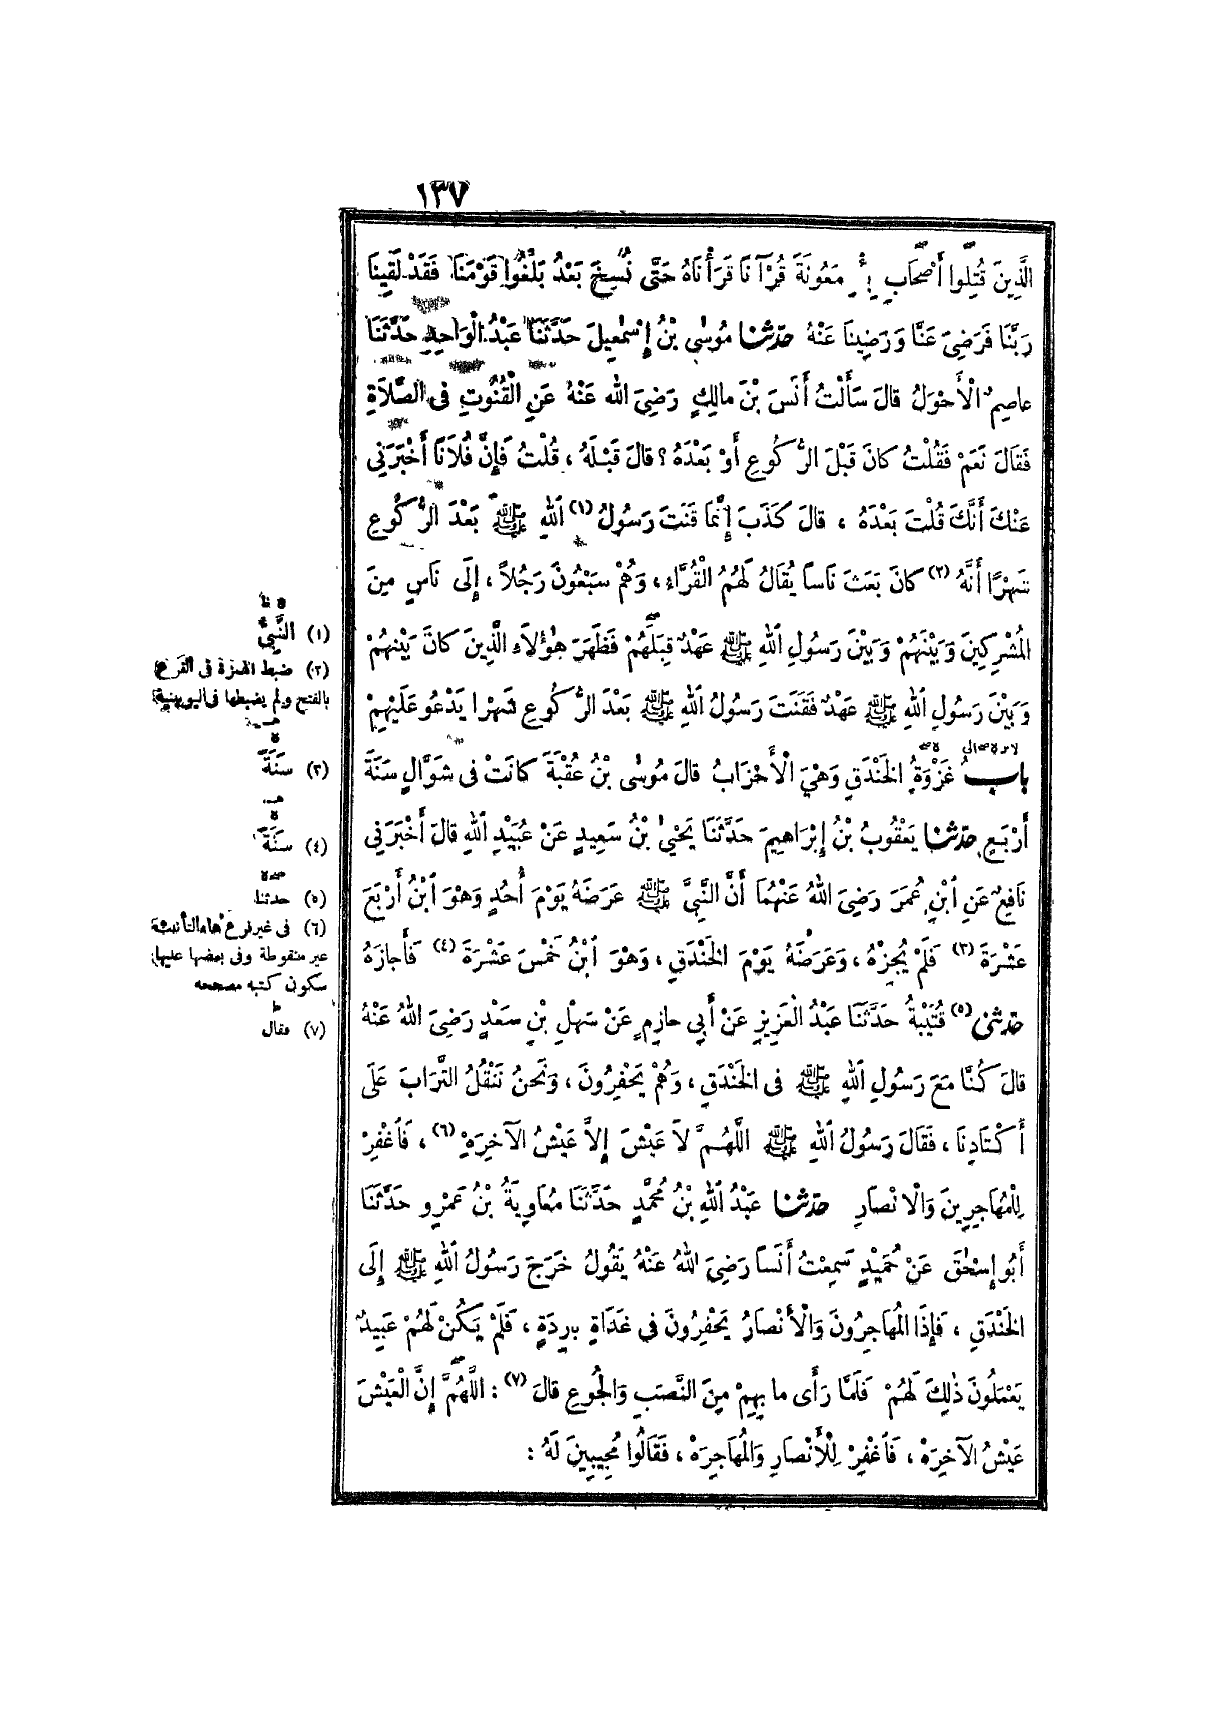 ١٣٧
الَّذِينَ قُتِلُوا أَصْحَابِ بِئْرِ مَعُونَةَ قُرْآنًا قَرَأْنَاهُ حَتَّى نُسِخَ بَعْدُ بَلِّغُوا قَوْمَنَا فَقَدْ لَقِينَا
رَبَّنَا فَرَضِيَ عَنَّا وَرَضِينَا عَنْهُ حدّثنا مُوسٰى بْنُ إِسْمٰعِيلَ حَدَّثَنَا عَبْدُ الْوَاحِدِ حَدَّثَنَا
عاصِمٌ الْأَحْوَلُ قالَ سَأَلْتُ أَنَسَ بْنَ مالِكٍ رَضِيَ اللهُ عَنْهُ عَنِ الْقُنُوتِ فِى الصَّلاَةِ
فَقَالَ نَعَمْ فَقُلْتُ كانَ قَبْلَ الرُّكُوعِ أَوْ بَعْدَهُ ؟ قالَ قَبْلَهُ ، قُلْتُ فَإِنَّ فُلاَنًا أَخْبَرَنِي
عَنْكَ أَنَّكَ قُلْتَ بَعْدَهُ ، قالَ كَذَبَ إِنَّمَا قَنَتَ رَسُولُ (١) اللهِ ﷺ بَعْدَ الرُّكُوعِ
شَهْرًا أَنَّهُ (٢) كانَ بَعَثَ نَاسًا يُقَالُ لَهُمُ الْقُرَّاءُ ، وَهُمْ سَبْعُونَ رَجُلاً ، إِلَى نَاسٍ مِنَ
المُشْرِكِينَ وَبَيْنَهُمْ وَبَيْنَ رَسُولِ اللهِ ﷺ عَهْدٌ قِبَلَهُمْ فَظَهَرَ هٰؤُلاَءِ الَّذِينَ كانَ بَيْنَهُمْ
وَبَيْنَ رَسُولِ اللهِ ﷺ عَهْدٌ فَقَنَتَ رَسُولُ اللهِ ﷺ بَعْدَ الرُّكُوعِ شَهْرًا يَدْعُو عَلَيْهِمْ
بابُ غَزْوَةُ الخَنْدَقِ وَهْيَ الْأَحْزَابُ قالَ مُوسٰى بْنُ عُقْبَةَ كانَتْ فِى شَوَّالٍ سَنَةَ
أَرْبَعٍ حدّثنا يَعْقُوبُ بْنُ إِبْرَاهِيمَ حَدَّثَنَا يَحْيٰى بْنُ سَعِيدٍ عَنْ عُبَيْدِ اللهِ قالَ أَخْبَرَنِي
نَافِعٌ عَنِ ابْنِ عُمَرَ رَضِيَ اللهُ عَنْهُمَا أَنَّ النَّبِيَّ ﷺ عَرَضَهُ يَوْمَ أُحُدٍ وَهْوَ ابْنُ أَرْبَعَ
عَشْرَةَ (٣) فَلَمْ يُجِزْهُ ، وَعَرَضَهُ يَوْمَ الخَنْدَقِ ، وَهْوَ ابْنُ خَمْسَ عَشْرَةَ (٤) فَأَجازَهُ
حدّثنى (٥) قُتَيْبَةُ حَدَّثَنَا عَبْدُ الْعَزِيزِ عَنْ أَبِي حازِمٍ عَنْ سَهْلِ بْنِ سَعْدٍ رَضِيَ اللهُ عَنْهُ
قالَ كُنَّا مَعَ رَسُولِ اللهِ ﷺ فِى الخَنْدَقِ ، وَهُمْ يَحْفِرُونَ ، وَنَحْنُ نَنْقُلُ التُّرَابَ عَلَى
أَكْتَادِنَا ، فَقَالَ رَسُولُ اللهِ ﷺ اللَّهُمَّ لاَ عَيْشَ إِلاَّ عَيْشُ الآخِرَهْ (٦) ، فَاغْفِرْ
لِلْمُهَاجِرِينَ وَالْانْصَارِ حدّثنا عَبْدُ اللهِ بْنُ مُحَمَّدٍ حَدَّثَنَا مُعَاوِيَةُ بْنُ عَمْرٍو حَدَّثَنَا
أَبُو إِسْحٰقَ عَنْ حُمَيْدٍ سَمِعْتُ أَنَسًا رَضِيَ اللهُ عَنْهُ يَقُولُ خَرَجَ رَسُولُ اللهِ ﷺ إِلَى
الخَنْدَقِ ، فَإِذَا المُهَاجِرُونَ وَالْأَنْصَارُ يَحْفِرُونَ فِى غَدَاةٍ بارِدَةٍ ، فَلَمْ يَكُنْ لَهُمْ عَبِيدٌ
يَعْمَلُونَ ذٰلِكَ لَهُمْ فَلَمَّا رَأَى ما بِهِمْ مِنَ النَّصَبِ وَالجُوعِ قالَ (٧) : اللَّهُمَّ إِنَّ الْعَيْشَ
عَيْشُ الآخِرَهْ ، فَاغْفِرْ لِلْأَنْصَارِ وَالمُهَاجِرَهْ ، فَقَالُوا مُجِيبِينَ لَهُ :
(١) النَّبِيُّ
(٢) ضبط الهمزة فى الفرع
بالفتح ولم يضبطها فى اليونينية
(٣) سَنَةً
(٤) سَنَةً
(٥) حدثنا
(٦) فى غير فرع هاء التأنيث
غير منقوطة وفى بعضها عليها
سكون كتبه مصححه
(٧) فقال